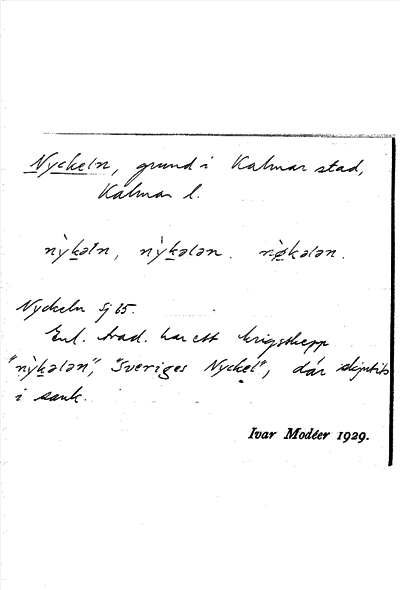 Nyckeln, grund i Kalmar stad,
Kalmar l.
nỳk̲əln, nỳk̲ələn. nø̀kələn.
Nyckeln Sj 65.
Enl. trad. har ett krigsskepp
"nỳk̲ələn", "Sveriges Nyckel", där skjutits
i sank.
Ivar Modéer 1929.